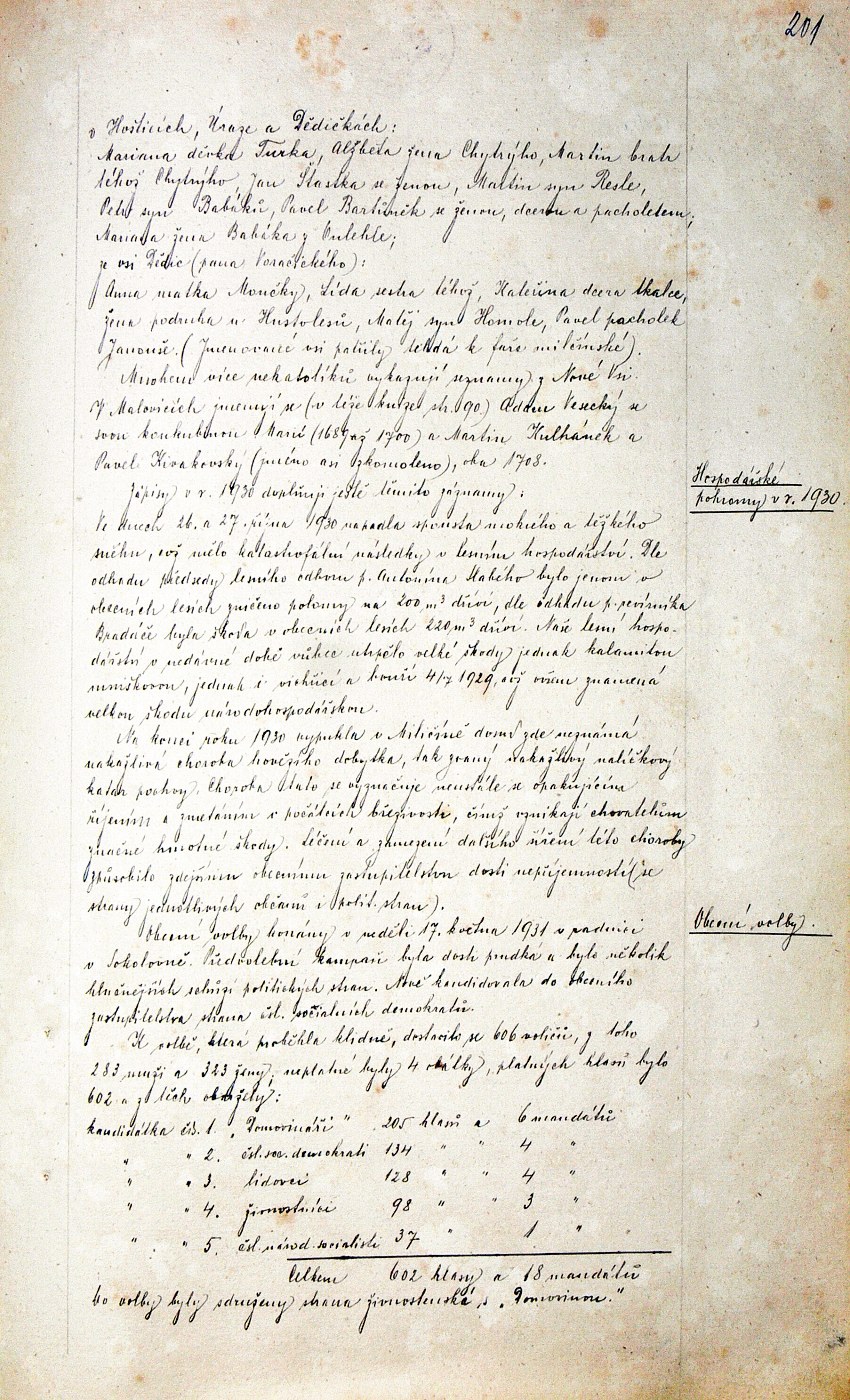 201
v Hošticích, Úraze a Dědičkách:
Mariana děvka Turka, Alžběta žena Chytrýho, Martin bratr
téhož Chytrýho, Jan Šťastka se ženou, Martin syn Resle,
Petr syn Babáků, Pavel Bartůněk se ženou, dcerou a pacholetem;
Mariana žena Babáka z Outehle;
ze vsi Dědic (pana Voračického):
Anna matka Mončky, Lída sestra téhož, Kateřina dcera tkalce,
žena podruha u Hustolesů, Matěj syn Homole, Pavel pacholek
Janouše. (Jmenované vsi patřily tehdá k faře milčínské).
Mnohem více nekatolíků vykazují seznamy z Nové Vsi.
V Malovicích jmenují se (v téže knize str. 90) Adam Vesecký se
svou konkubinou Marií (1689 až 1700) a Martin Kulhánek a
Pavel Kivakovský (jméno asi zkomoleno), oba 1708.
Zápisy v r. 1930 doplňuji ještě těmito záznamy:
Hospodářské
pohromy v r. 1930.
Ve dnech 26. a 27. října 1930 napadla spousta mokrého a těžkého
sněhu, což mělo katastrofální následky v lesním hospodářství. Dle
odhadu předsedy lesního odboru p. Antonína Habého bylo jenom v
obecních lesích zničeno polomy na 200 m³ dříví, dle odhadu p. revírníka
Bradáče byla škoda v obecních lesích 220 m³ dříví. Naše lesní hospo-
dářství v nedávné době vůbec utrpělo velké škody jednak kalamitou
mniškovou, jednak i vichřicí a bouří 4/7 1929, což ovšem znamená
velkou škodu národohospodářskou.
Na konci roku 1930 vypukla v Miličíně dosud zde neznámá
nakažlivá choroba hovězího dobytka, tak zvaný nakažlivý nalíčkový
katar pochvy. Choroba tato se vyznačuje neustále se opakujícím
říjením a zmetáním v počátcích březivosti, čímž vznikají chovatelům
značné hmotné škody. Léčení a zamezení dalšího šíření této choroby
způsobilo zdejšímu obecnímu zastupitelstvu dosti nepříjemností (se
strany jednotlivých občanů i polit. stran).
Obecní volby.
Obecní volby konány v neděli 17. května 1931 v radnici
v Sokolovně. Předvolební kampaň byla dosti prudká a bylo několik
hlučnějších schůzí politických stran. Nově kandidovala do obecního
zastupitelstva strana čsl. sociálních demokratů.
K volbě, která proběhla klidně, dostavilo se 606 voličů, z toho
283 muži a 323 ženy; neplatné byly 4 obálky, platných hlasů bylo
602 a z těch obdržely:
kandidátka čís. 1. „Domovináři" 205 hlasů a 6 mandátů
" " 2. čsl. soc. demokrati 134 " " 4 "
" " 3. lidovci 128 " " 4 "
" " 4. živnostníci 98 " " 3 "
" " 5. čsl. národ. socialisti 37 " 1 "
Celkem 602 hlasy a 18 mandátů
Ku volby byly sdruženy strana živnostenská s „Domovinou."